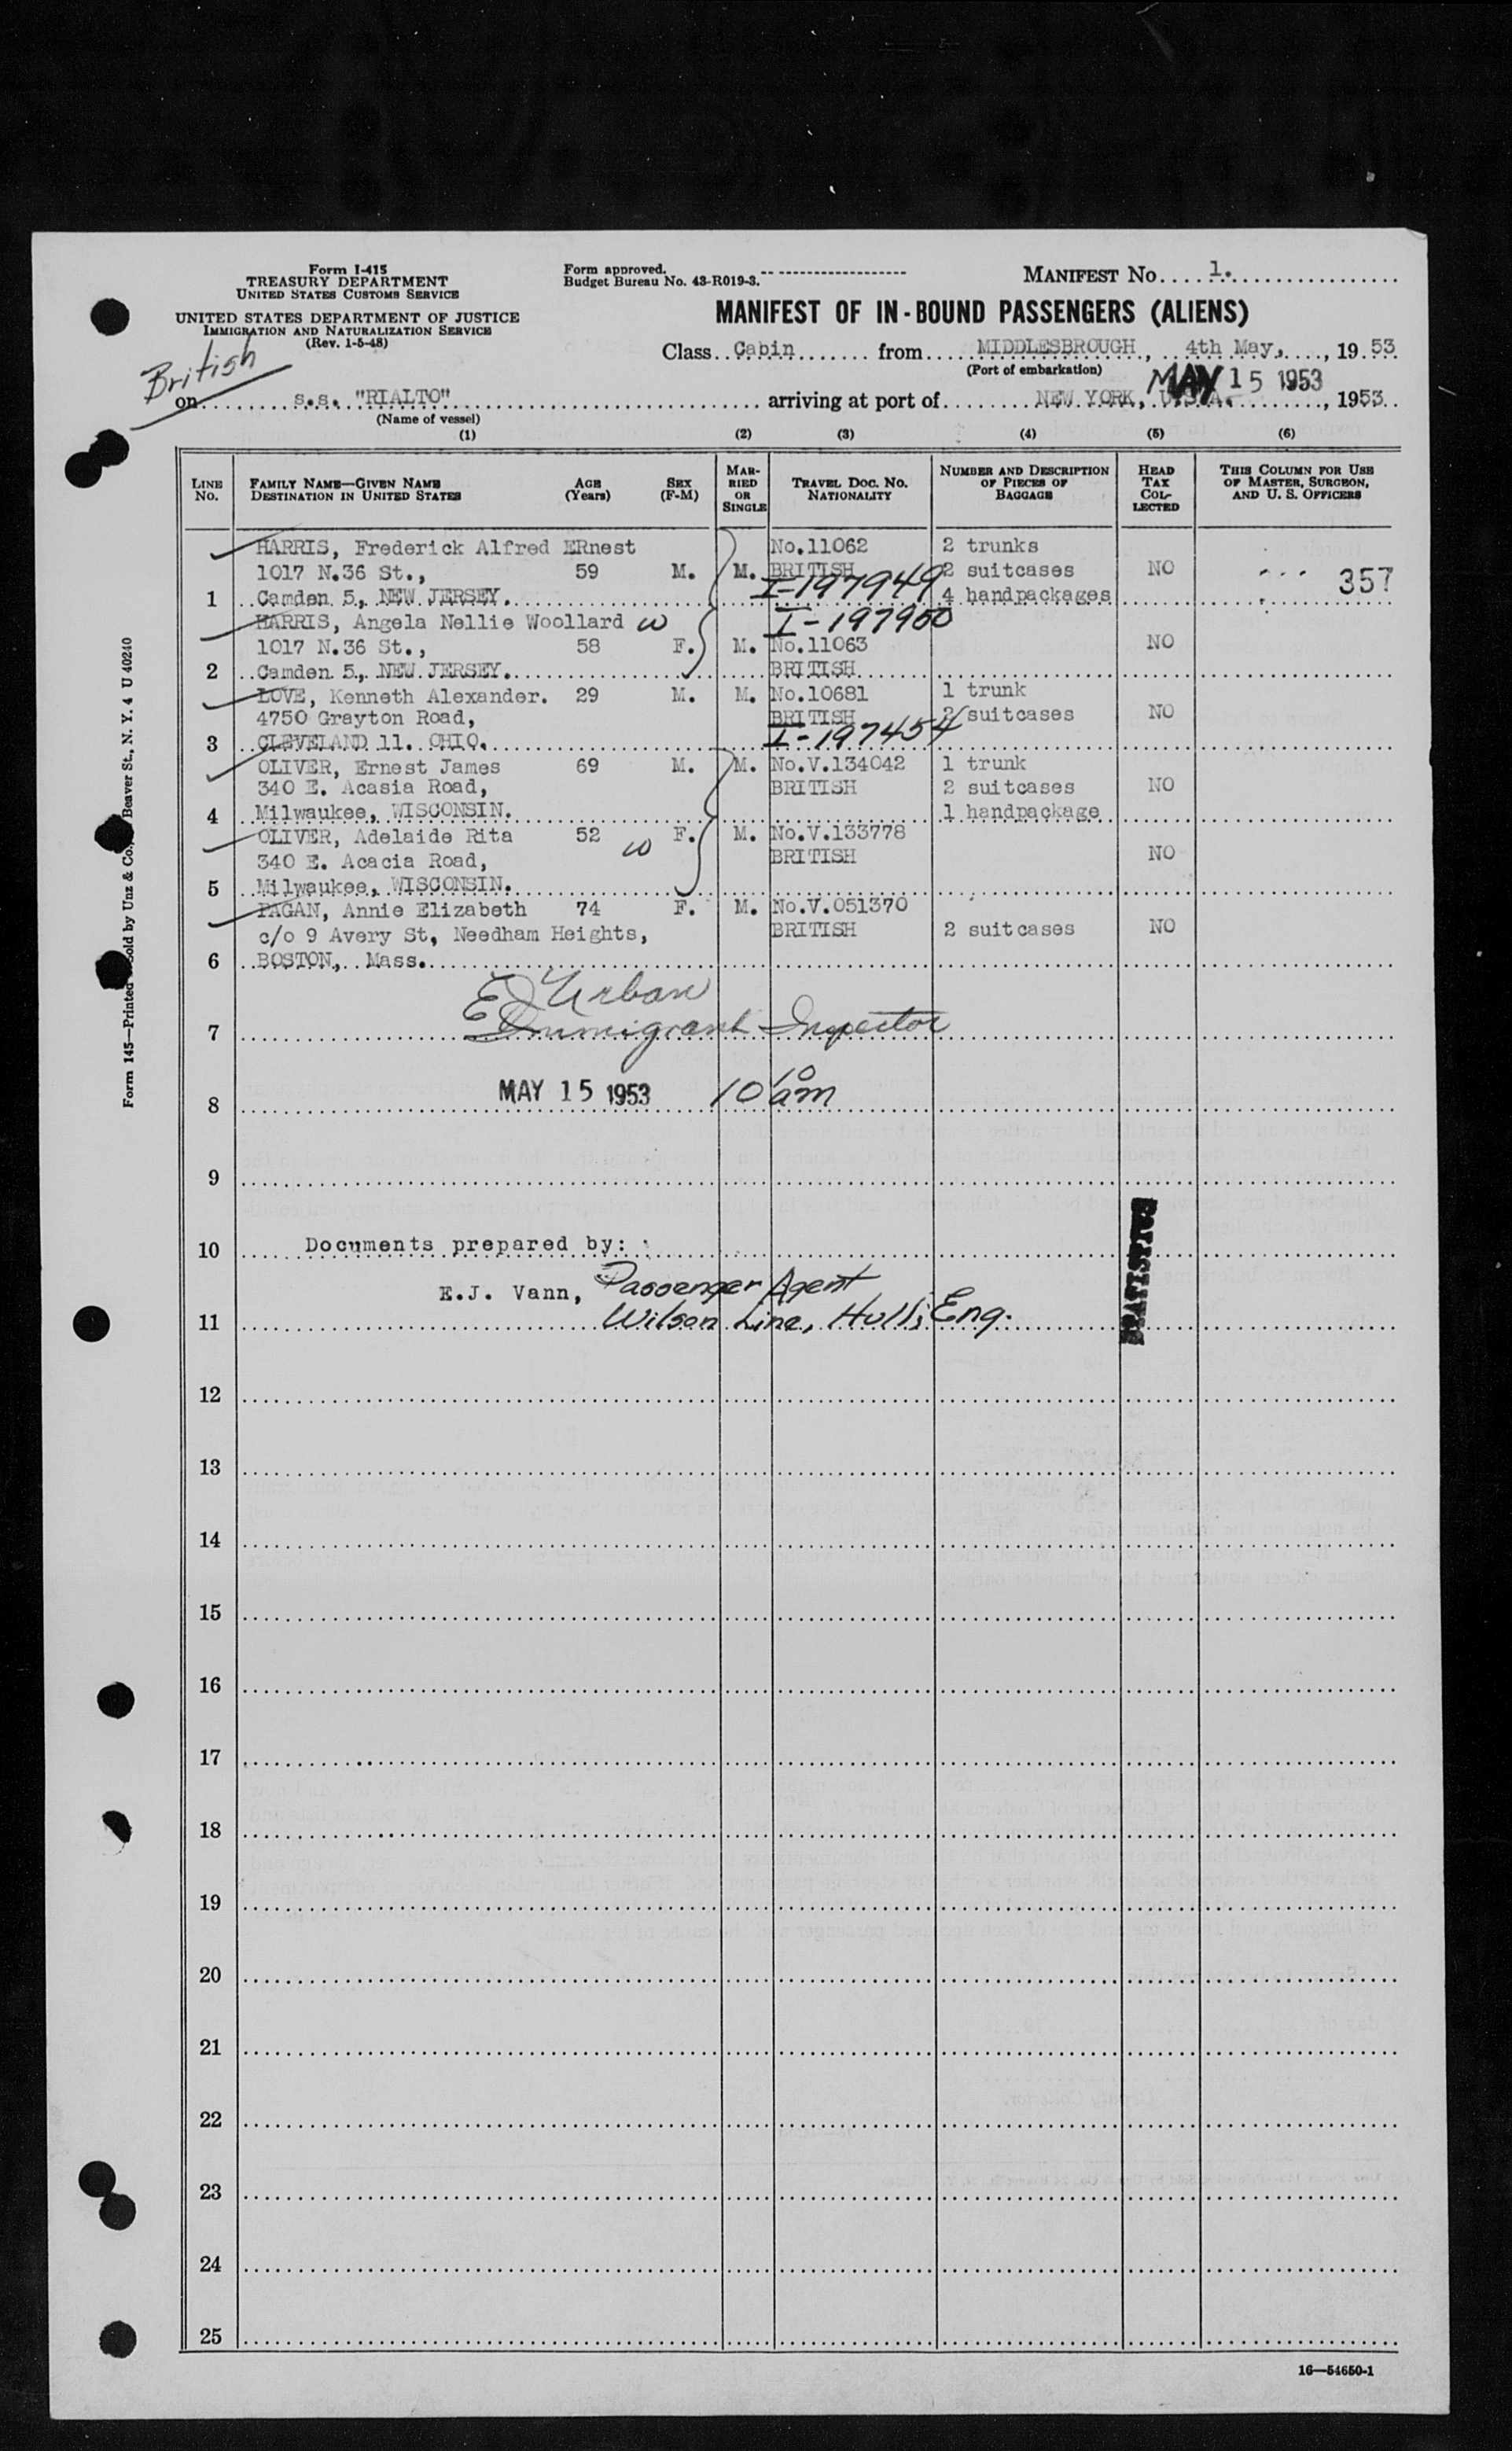 Form I-415
TREASURY DEPARTMENT
UNITED STATES CUSTOMS SERVICE
UNITED STATES DEPARTMENT OF JUSTICE
IMMIGRATION AND NATURALIZATION SERVICE
(Rev. 1-5-48)
Form approved.
Budget Bureau No. 43-R019-3.
MANIFEST No. 1.
MANIFEST OF IN-BOUND PASSENGERS (ALIENS)
Class Cabin from MIDDLESBROUGH, 4th May, 1953
(Port of embarkation)
MAY 15 1953
British
on s.s. "RIALTO" arriving at port of NEW YORK, U.S.A. , 1953
(Name of vessel)
(1) (2) (3) (4) (5) (6)
LINE No. FAMILY NAME—GIVEN NAME DESTINATION IN UNITED STATES AGE (Years) SEX (F-M) MARRIED OR SINGLE TRAVEL DOC. NO. NATIONALITY NUMBER AND DESCRIPTION OF PIECES OF BAGGAGE HEAD TAX COLLECTED THIS COLUMN FOR USE OF MASTER, SURGEON, AND U. S. OFFICERS
HARRIS, Frederick Alfred ERnest No.11062 2 trunks
1017 N.36 St., 59 M. M. BRITISH 2 suitcases NO
1 Camden 5, NEW JERSEY. I-197949 4 handpackages 357
HARRIS, Angela Nellie Woollard W I-197950
1017 N.36 St., 58 F. M. No.11063 NO
2 Camden 5, NEW JERSEY. BRITISH
LOVE, Kenneth Alexander. 29 M. M. No.10681 1 trunk
4750 Grayton Road, BRITISH 2 suitcases NO
3 CLEVELAND 11. OHIO. I-197454
OLIVER, Ernest James 69 M. M. No.V.134042 1 trunk
340 E. Acasia Road, BRITISH 2 suitcases NO
4 Milwaukee, WISCONSIN. 1 handpackage
OLIVER, Adelaide Rita 52 W F. M. No.V.133778
340 E. Acacia Road, BRITISH NO
5 Milwaukee, WISCONSIN.
PAGAN, Annie Elizabeth 74 F. M. No.V.051370
c/o 9 Avery St, Needham Heights, BRITISH 2 suitcases NO
6 BOSTON, Mass.
Urban
7 Immigrant Inspector
8 MAY 15 1953 10 10 am
9
10 Documents prepared by:
E.J. Vann, Passenger Agent
11 Wilson Line, Hull, Eng.
STATISTICS
12
13
14
15
16
17
18
19
20
21
22
23
24
25
16—54650-1
Form 145—Printed Sold by Unz & Co. Beaver St., N. Y. 4 U 40240